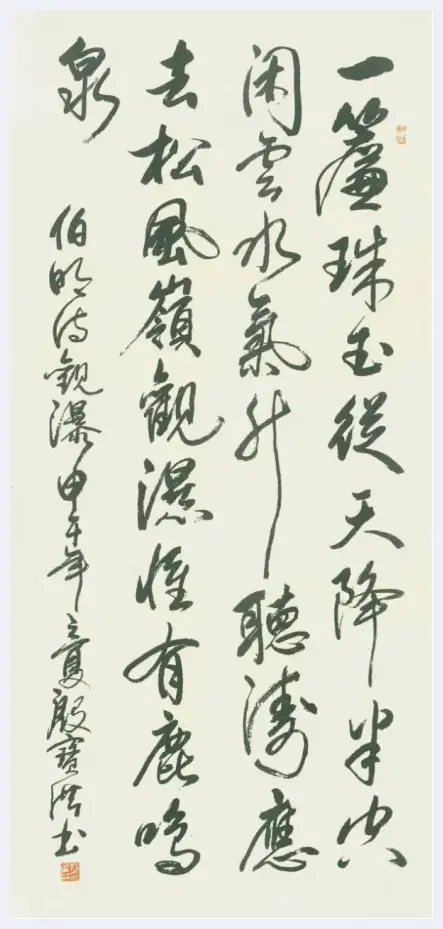 一簾珠玉從天降半空
閑雲水氣升聽濤應
去松風嶺觀瀑惟有鹿鳴
泉
伯明詩觀瀑甲午年之夏殷寶洪書